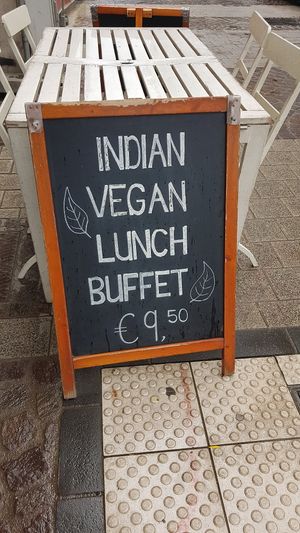 INDIAN
VEGAN
LUNCH
BUFFET
€ 9,50